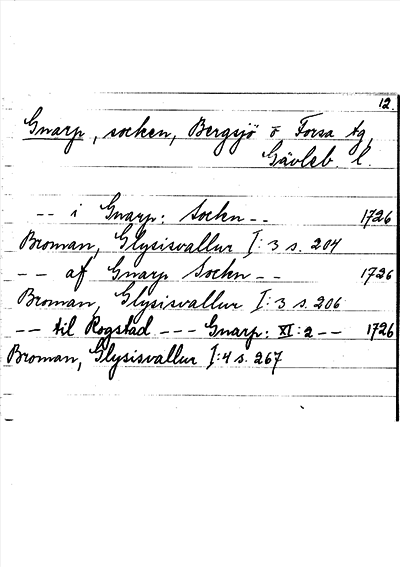 12.
Gnarp, socken, Bergsjö o Forsa tg
Gävleb. l.
-- i Gnarp: Sockn -- 1726
Broman, Glysisvallur I:3 s. 204
-- af Gnarp Sockn -- 1726
Broman, Glysisvallur I:3 s. 206
-- til Rogstad --- Gnarp: XI:2 -- 1726
Broman, Glysisvallur I:4 s. 267